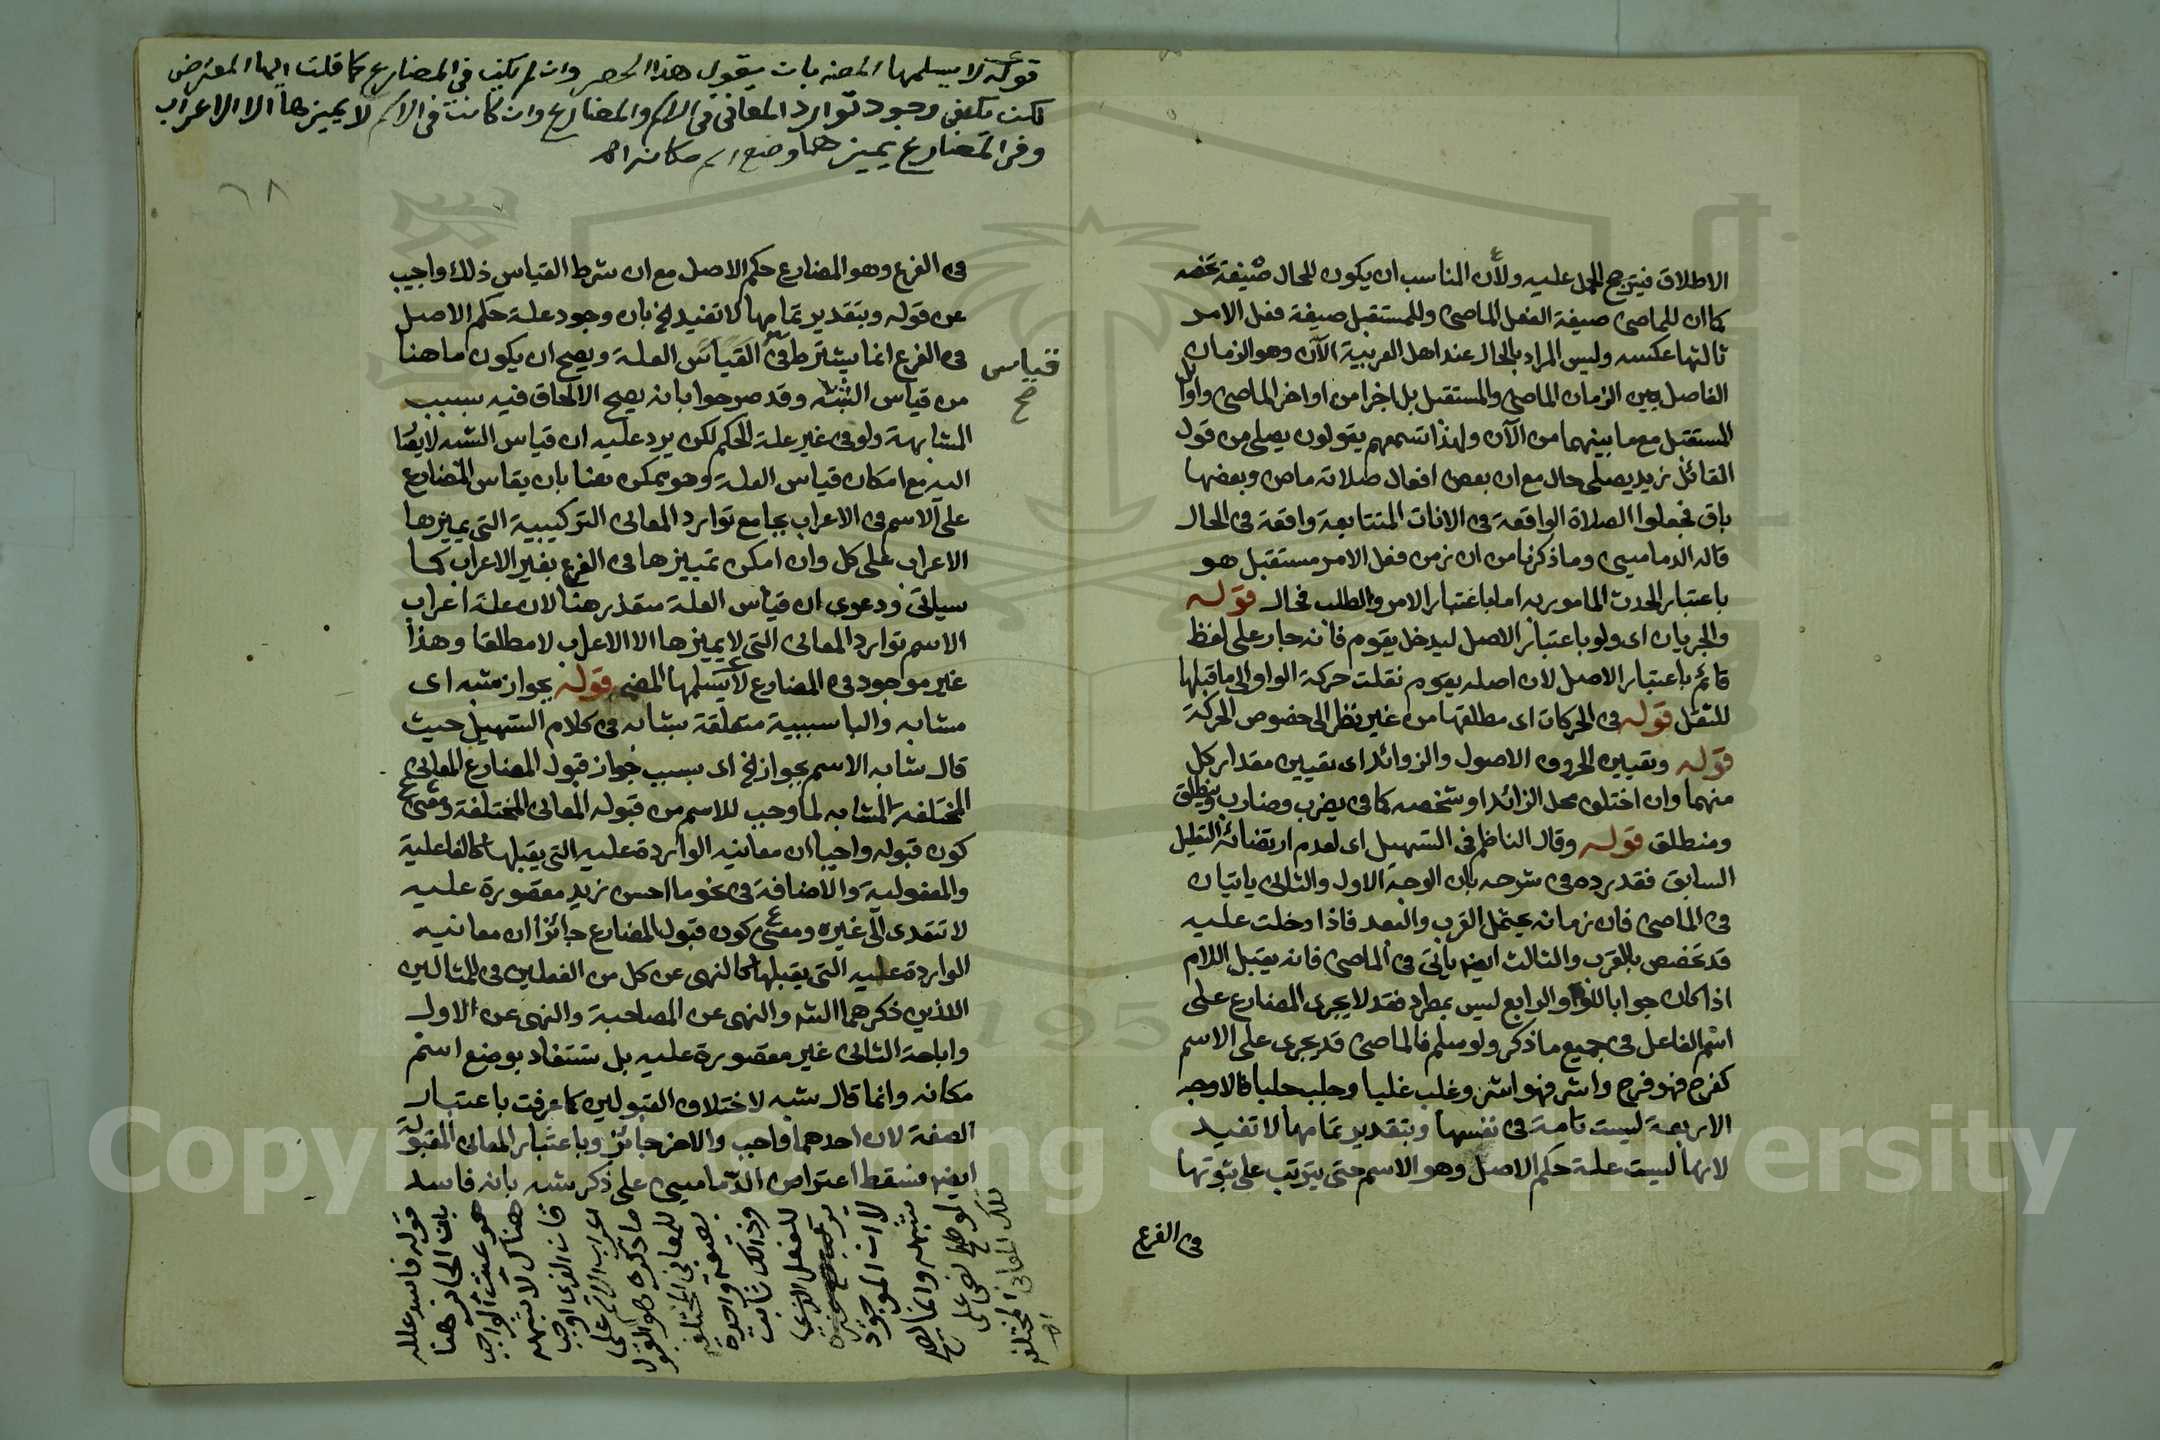 الاطلاق فيترجح الحمل عليه ولأن المناسب ان يكون للحال صيغة تخصه
كما ان للماضى صيغة الفعل الماضى وللمستقبل صيغة فعل الامر
ثالثها عكسه وليس المراد بالحال عند اهل العربية الآن وهو الزمان
الفاصل بين الزمان الماضى والمستقبل بل اجزا من اواخر الماضى واوائل
المستقبل مع ما بينهما من الآن ولهذا تسمعهم يقولون يصلى من قول
القائل زيد يصلى حال مع ان بعض افعال صلاته ماض وبعضها
باق فجعلوا الصلاة الواقعة فى الانات المتتابعة واقعة فى الحال
قاله الدمامينى وما ذكرنا من ان زمن فعل الامر مستقبل هو
باعتبار الحدث المامور به اما باعتبار الامر والطلب فحال قوله
والجريان اى ولو باعتبار الاصل ليدخل يقوم فانه جار على لفظ
قائم باعتبار الاصل لان اصله يقوم نقلت حركة الواو الى ما قبلها
للثقل قوله فى الحركات اى مطلقها من غير نظر الى خصوص الحركة
قوله وتعيين الحروف الاصول والزوائد اى تعيين مقدار كل
منهما وان اختلف محل الزائد او شخصه كما فى يضرب وضارب وينطلق
ومنطلق قوله وقال الناظم فى التسهيل اى لعدم ارتضائه التعليل
السابق فقد رده فى شرحه بان الوجه الاول والثانى ياتيان
فى الماضى فان زمانه يحتمل القرب والبعد فاذا دخلت عليه
قد تخصص بالقرب والثالث ايضا ياتى فى الماضى فانه يقبل اللام
اذا كان جوابا للو والرابع ليس بمطرد فقد لا يجرى المضارع على
اسم الفاعل فى جميع ما ذكر ولو سلم فالماضى قد يجرى على الاسم
كفرح فهو فرح واشر فهو اشر وغلب غلبا وجلب جلبا فالاوجه
الاربعة ليست تامة فى نفسها وبتقدير تمامها لا تفيد
لانها ليست علة حكم الاصل وهو الاسم حتى يترتب على ثبوتها
فى الفرع
قوله لا يسلمها المصنف بان يقول هذا الحصر وان لم يكن فى المضارع كما قلت ايها المعترض
لكن يكفى وجود توارد المعانى فى الاسم والمضارع وان كانت فى الاسم لا يميزها الا الاعراب
وفى المضارع يميزهما وضع اسم مكانه اه
٦٨
فى الفرع وهو المضارع حكم الاصل مع ان شرط القياس ذلك واجيب
عن قوله وبتقدير تمامها لا تفيد الخ بان وجود علة حكم الاصل
فى الفرع انما يشترط فى القياس العلة ويصح ان يكون ما هنا
قياس
صح
من قياس الشبه وقد صرحوا بانه يصح الالحاق فيه بسبب
المشابهة ولو فى غير علة الحكم لكن يرد عليه ان قياس الشبه لا يصار
اليه مع امكان قياس العلة وهو ممكن هنا بان يقاس المضارع
على الاسم فى الاعراب بجامع توارد المعانى التركيبية التى يميزها
الاعراب على كل وان امكن تمييزها فى الفرع بغير الاعراب كما
سياتى ودعوى ان قياس العلة متعذر هنا لان علة اعراب
الاسم توارد المعانى التى لا يميزها الا الاعراب لا مطلقا وهذا
غير موجود فى المضارع لا يسلمها المصنف قوله بجواز شبه اى
مشابه والبا سببية متعلقة بشابه فى كلام التسهيل حيث
قال شابه الاسم بجواز الخ اى بسبب جواز قبول المضارع المعانى
المختلفة المشابه لما وجب للاسم من قبوله المعانى المختلفة ومعنى
كون قبوله واجبا ان معانيه الواردة عليه التى يقبلها كالفاعلية
والمفعولية والاضافة فى نحو ما احسن زيد مقصورة عليه
لا تتعدى الى غيره ومعنى كون قبول المضارع جائزا ان معانيه
الواردة عليه التى يقبلها كالنهى عن كل من الفعلين فى المثالين
اللذين ذكرهما الش والنهى عن المصاحبة والنهى عن الاول
واباحة الثانى غير مقصورة عليه بل تستفاد بوضع اسم
مكانه وانما قال شبه لاختلاف القبولين كما عرفت باعتبار
الصفة لان احدهما واجب والاخر جائز وباعتبار المعانى المقبولة
ايضا فسقط اعتراض الدمامينى على ذكر شبه بانه فاسد
قوله فاسد علله
بان الجائز هنا
هو عين الواجب
هناك لا شبهه
فان الذى اوجب
اعراب الاسم على
ما ذكره هو القبول
للمعانى المختلفة
بصيغة واحدة
وذلك ثابت
للفعل الذى
لا ان الموجود
شبهه وانما
تلك المعانى المختلفة
اه